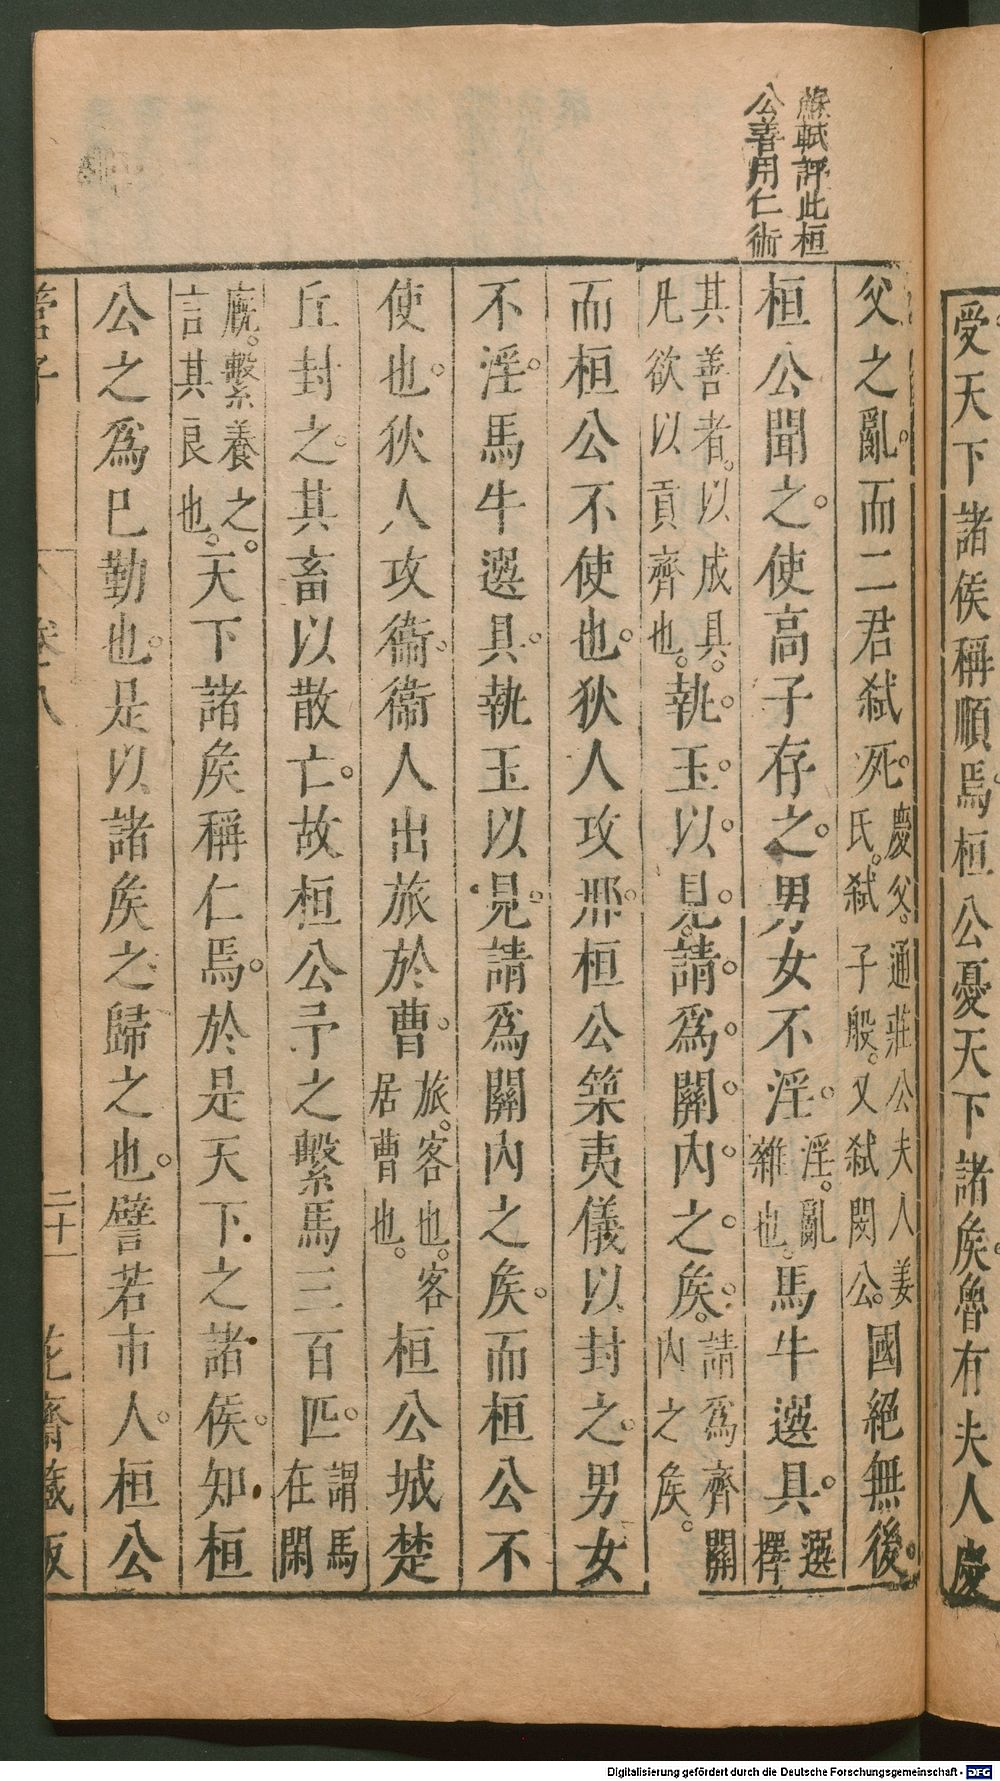 受天下諸侯稱順焉桓公憂天下諸侯魯有夫人慶
蘇軾評此桓
公善用仁術
父之亂。而二君弒死。慶父。通莊公夫人姜氏。弒子般。又弒閔公。國絕無後。
桓公聞之。使高子存之。男女不淫。淫。亂雜也。馬牛選具。選擇
其善者。以成具。凡欲以貢齊也。執玉以見。請為關內之侯。請為齊關內之侯。
而桓公不使也。狄人攻邢。桓公築夷儀以封之。男女
不淫。馬牛選具。執玉以見。請爲關內之侯。而桓公不
使也。狄人攻衞。衞人出旅於曹。旅。客也。客居曹也。桓公城楚
丘封之。其畜以散亡。故桓公予之繫馬三百匹。謂馬在閑
廐。繫養之。言其良也。天下諸侯稱仁焉。於是天下之諸侯。知桓
公之爲已勤也。是以諸侯之歸之也。譬若市人。桓公
管子 卷八 二十一 花齋藏版
Digitalisierung gefördert durch die Deutsche Forschungsgemeinschaft - DFG